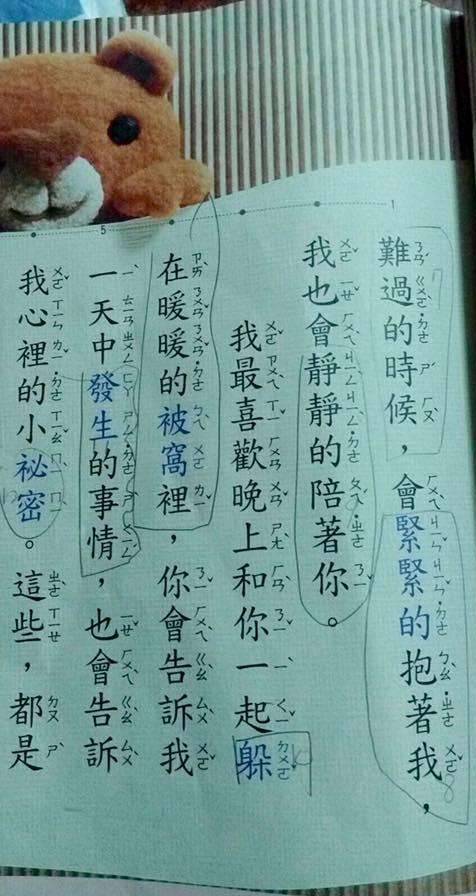 1
難過的時候，會緊緊的抱著我，
我也會靜靜的陪著你。
我最喜歡晚上和你一起躲
在暖暖的被窩裡，你會告訴我
5
一天中發生的事情，也會告訴
我心裡的小祕密。這些，都是